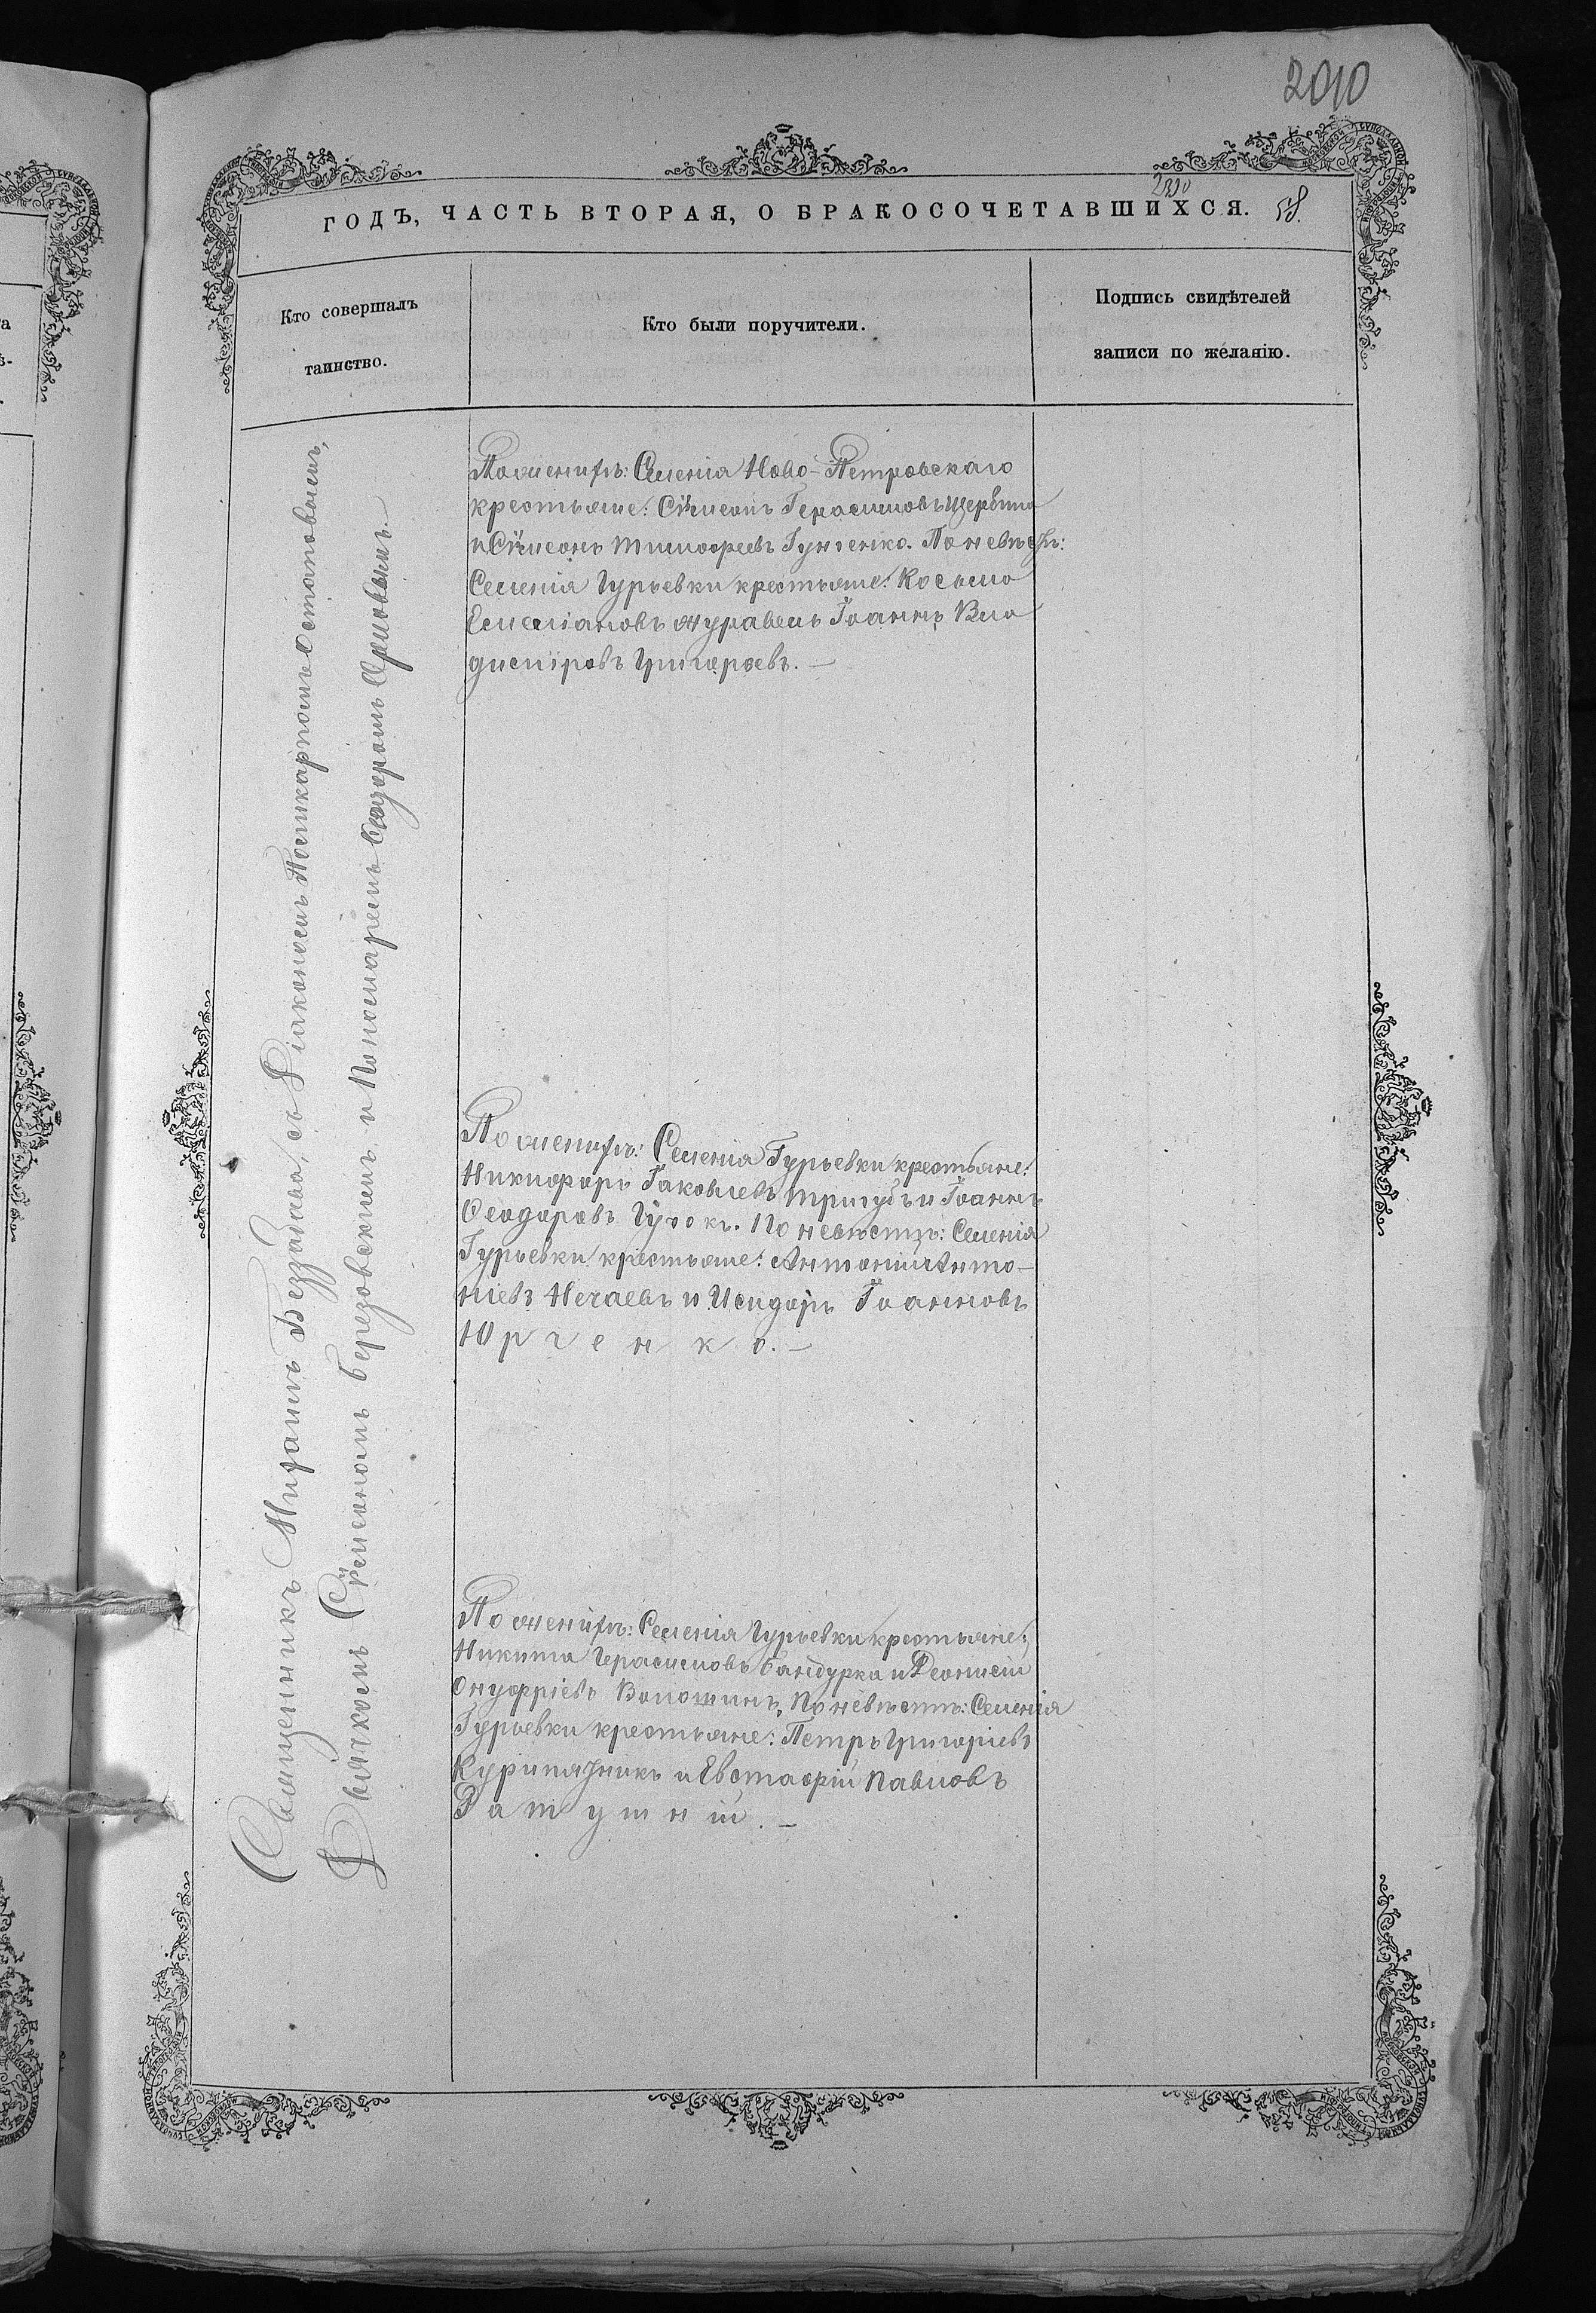 2010
2390
ГОДЪ, ЧАСТЬ ВТОРАЯ, О БРАКОСОЧЕТАВШИХСЯ. 58.
Кто совершалъ
таинство.
Кто были поручители.
Подпись свидѣтелей
записи по желанію.
Священникъ Безздава, съ Діакономъ Поликарпомъ Остаповымъ,
Дьячкомъ Сѵмеономъ Березовскимъ и Пономаремъ Ѳеодоромъ
По женихѣ: Селенія Ново-Петровскаго
крестьяне: Сѵмеонъ Герасимовъ Щербина
и Сѵмеонъ Тимоѳеевъ Гунченко. По невѣстѣ:
Селенія Гурьевки крестьяне: Косьма
Емеліановъ Журавель Іоаннъ Вла
диміровъ Григоровъ. —
По женихѣ: Селенія Гурьевки крестьяне:
Никифоръ Іаковлевъ Тригубъ и Іоаннъ
Ѳеодоровъ По невѣстѣ: Селенія
Гурьевки крестьяне: Антоній Анто-
ніевъ Нечаевъ и Исидоръ Іоанновъ
Юрченко. —
По женихѣ: Селенія Гурьевки крестьяне:
Никита Герасимовъ Бандурка и Діонисій
Онуфріевъ Волошинъ, По невѣстѣ: Селенія
Гурьевки крестьяне: Петръ Григоріевъ
Курипятникъ и Евстафій Павловъ
Ратушній. —